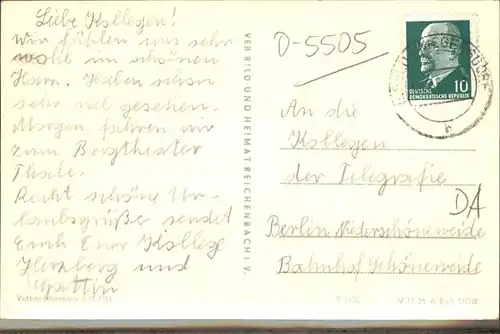 Liebe Kollegen!
Wir fühlen uns sehr
wohl im schönen
Harz. Haben schon
sehr viel gesehen.
Morgen fahren wir
zum Bergtheater
Thale.
Recht schöne Ur-
laubsgrüße sendet
Euch Euer Kollege
Herzberg und
Gattin
VEB BILD UND HEIMAT REICHENBACH I. V.
D-5505
DEUTSCHE
DEMOKRATISCHE REPUBLIK
10
b
An die
Kollegen
der Telegrafie
DA
Berlin Niederschöneweide
Bahnhof Schöneweide